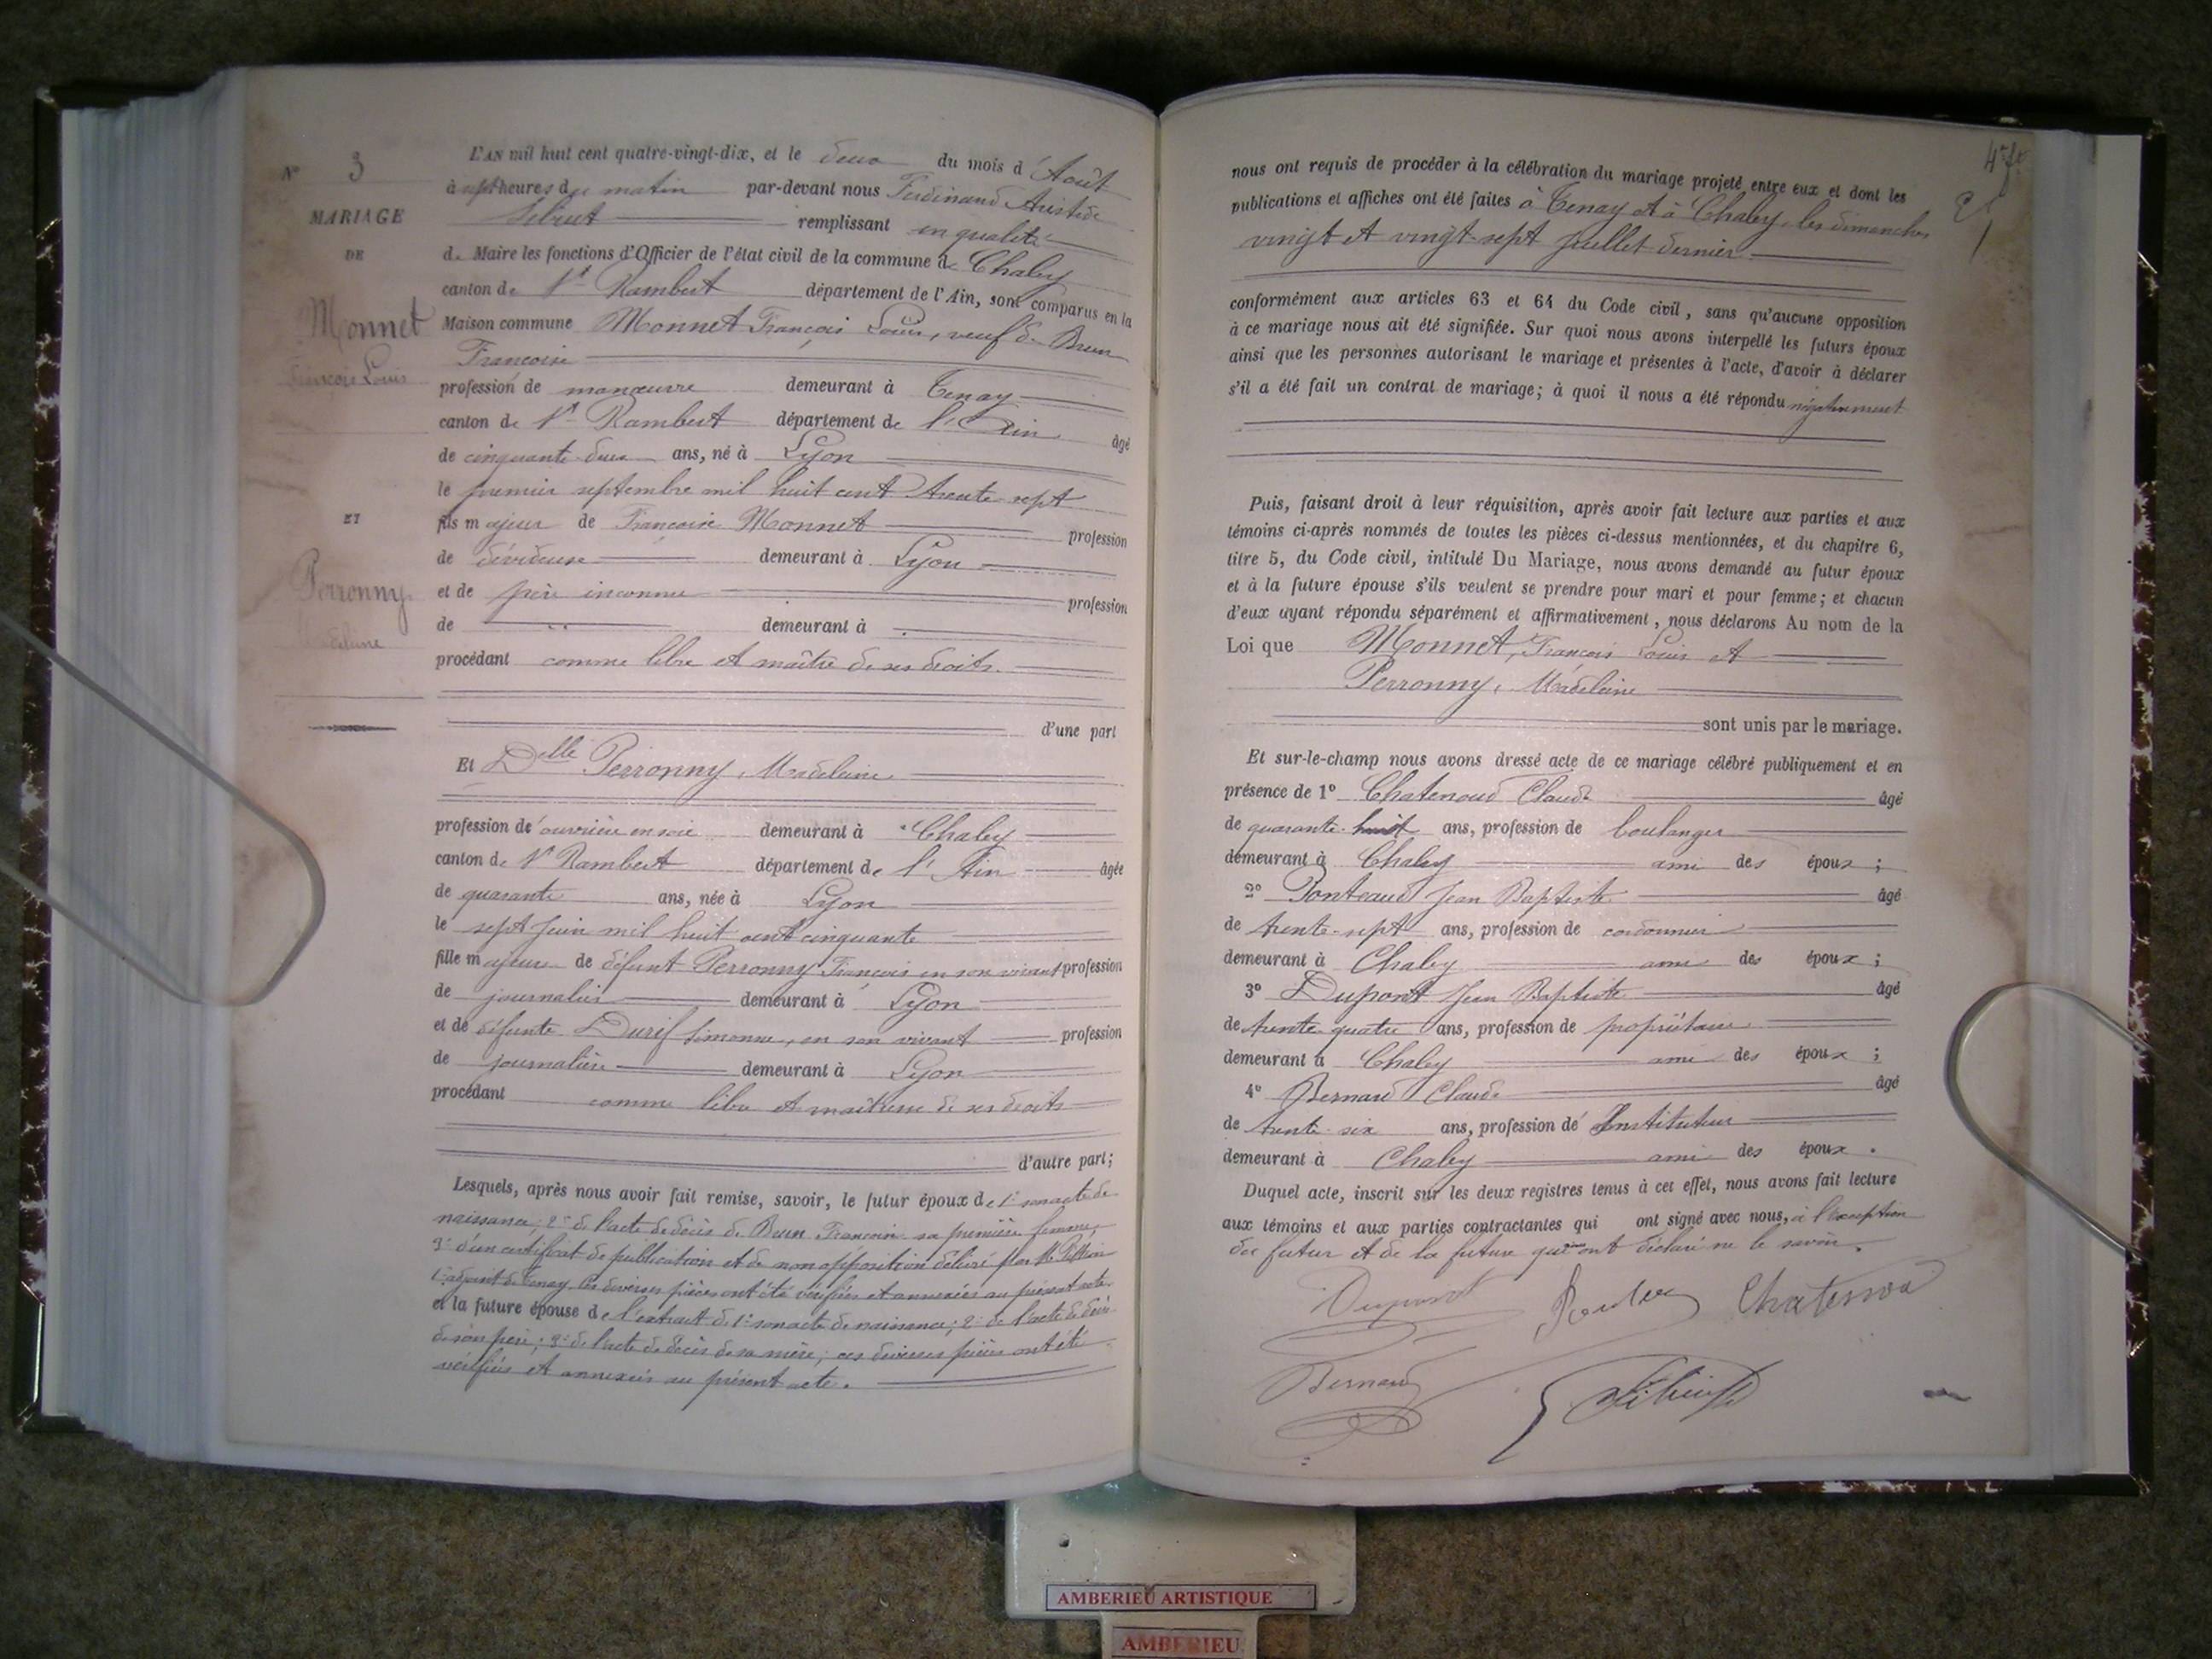 N° 3
MARIAGE
DE
Monnet
François Louis
ET
Perronny
Madeleine
L'AN mil huit cent quatre-vingt-dix, et le deux du mois d'Août
à sept heures du matin par-devant nous Ferdinand Aristide
remplissant en qualité
de Maire les fonctions d'Officier de l'état civil de la commune de Chaley
canton de St Rambert département de l'Ain, sont comparus en la
Maison commune Monnet François Louis, veuf de Brun
Françoise
profession de manœuvre demeurant à Tenay
canton de St Rambert département de l'Ain âgé
de cinquante deux ans, né à Lyon
le premier septembre mil huit cent trente sept
fils majeur de Françoise Monnet profession
de dévideuse demeurant à Lyon
et de père inconnu profession
de demeurant à
procédant comme libre et maître de ses droits.
d'une part
Et Delle Perronny, Madeleine
profession d'ouvrière en soie demeurant à Chaley
canton de St Rambert département de l'Ain âgée
de quarante ans, née à Lyon
le sept Juin mil huit cent cinquante
fille majeure de défunt Perronny François en son vivant profession
de journalier demeurant à Lyon
et de défunte Durif Simonne, en son vivant profession
de journalière demeurant à Lyon
procédant comme libre et maîtresse de ses droits
d'autre part;
Lesquels, après nous avoir fait remise, savoir, le futur époux de 1° son acte de
naissance; 2° de l'acte de décès de Brun Françoise sa première femme;
3° d'un certificat de publication et de non opposition délivré par Mr
1er adjoint de Tenay. Ces diverses pièces ont été vérifiées et annexées au présent acte.
et la future épouse de l'extrait de 1° son acte de naissance; 2° de l'acte de décès
de son père; 3° de l'acte de décès de sa mère; ces diverses pièces ont été
vérifiées et annexées au présent acte.
nous ont requis de procéder à la célébration du mariage projeté entre eux et dont les
publications et affiches ont été faites à Tenay et à Chaley, les dimanches
vingt et vingt-sept Juillet dernier.
conformément aux articles 63 et 64 du Code civil, sans qu'aucune opposition
à ce mariage nous ait été signifiée. Sur quoi nous avons interpellé les futurs époux
ainsi que les personnes autorisant le mariage et présentes à l'acte, d'avoir à déclarer
s'il a été fait un contrat de mariage; à quoi il nous a été répondu négativement
Puis, faisant droit à leur réquisition, après avoir fait lecture aux parties et aux
témoins ci-après nommés de toutes les pièces ci-dessus mentionnées, et du chapitre 6,
titre 5, du Code civil, intitulé Du Mariage, nous avons demandé au futur époux
et à la future épouse s'ils veulent se prendre pour mari et pour femme; et chacun
d'eux ayant répondu séparément et affirmativement, nous déclarons Au nom de la
Loi que Monnet, François Louis et
Perronny, Madeleine
sont unis par le mariage.
Et sur-le-champ nous avons dressé acte de ce mariage célébré publiquement et en
présence de 1° Chatenoud Claude âgé
de quarante-huit ans, profession de boulanger
demeurant à Chaley ami des époux;
2° Ponteaud Jean Baptiste âgé
de trente-sept ans, profession de cordonnier
demeurant à Chaley ami des époux;
3° Dupont Jean Baptiste âgé
de trente quatre ans, profession de propriétaire
demeurant à Chaley ami des époux;
4° Bernard Claude âgé
de trente-six ans, profession d'Instituteur
demeurant à Chaley ami des époux.
Duquel acte, inscrit sur les deux registres tenus à cet effet, nous avons fait lecture
aux témoins et aux parties contractantes qui ont signé avec nous, à l'exception
du futur et de la future qui ont déclaré ne le savoir.
Dupont
Bernard
AMBERIEU ARTISTIQUE
AMBERIEU